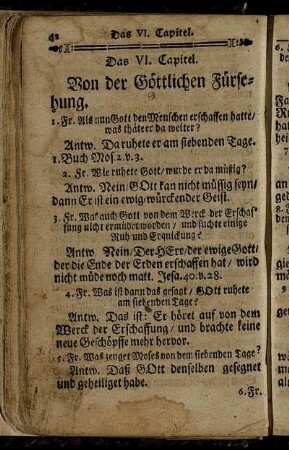 42 Das VI. Capitel.
Das VI. Capitel.
Von der Göttlichen Fürse-
hung.
1. Fr. Als nun Gott den Menschen erschaffen hatte/
was thäte er da weiter?
Antw. Da ruhete er am siebenden Tage.
1. Buch Mos. 2. v. 3.
2. Fr. Wie ruhete Gott/ wurde er da müßig?
Antw. Nein/ GOtt kan nicht müssig seyn/
dann Er ist ein ewig-würckender Geist.
3. Fr. War auch Gott von dem Werck der Erschaf-
fung nicht ermüdet worden/ und suchte einige
Ruh und Erquickung?
Antw. Nein/ Der HErr/ der ewige Gott/
der die Ende der Erden erschaffen hat/ wird
nicht müde noch matt. Jesa. 40. v. 28.
4. Fr. Was ist dann das gesagt/ GOtt ruhete
am siebenden Tage?
Antw. Das ist: Er höret auf von dem
Werck der Erschaffung/ und brachte keine
neue Geschöpffe mehr hervor.
5. Fr. Was zeuget Moses von dem siebenden Tage?
Antw. Daß GOtt denselben gesegnet
und geheiliget habe.
6. Fr.